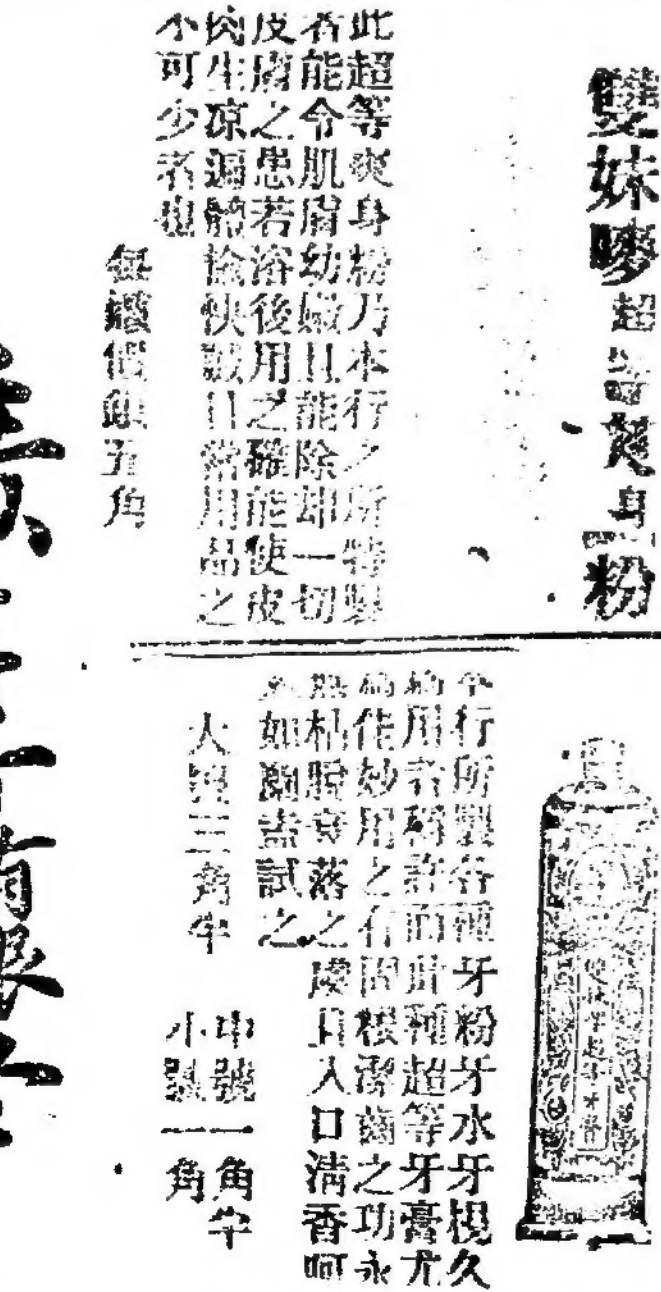 雙妹嘜超等爽身粉
此超等爽身粉乃本行之所特製
者能令肌膚幼嫩且能除却一切
皮膚之患若浴後用之確能使皮
肉生凉遍體愉快誠日常用品之
不可少者也
每罐價銀五角
行所製各種牙粉牙水牙梘久
用者稱許而此種超等牙膏尤
佳妙用之有固根潔齒之功永
無枯脫衰落之虞且入口清香呵
如蘭盍試之
大號三角半
中號一角半
小號一角
超等牙膏